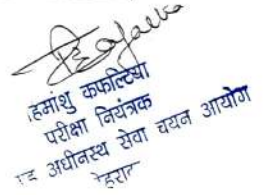 हिमांशु कफल्टिया
परीक्षा नियंत्रक
अधीनस्थ सेवा चयन आयोग